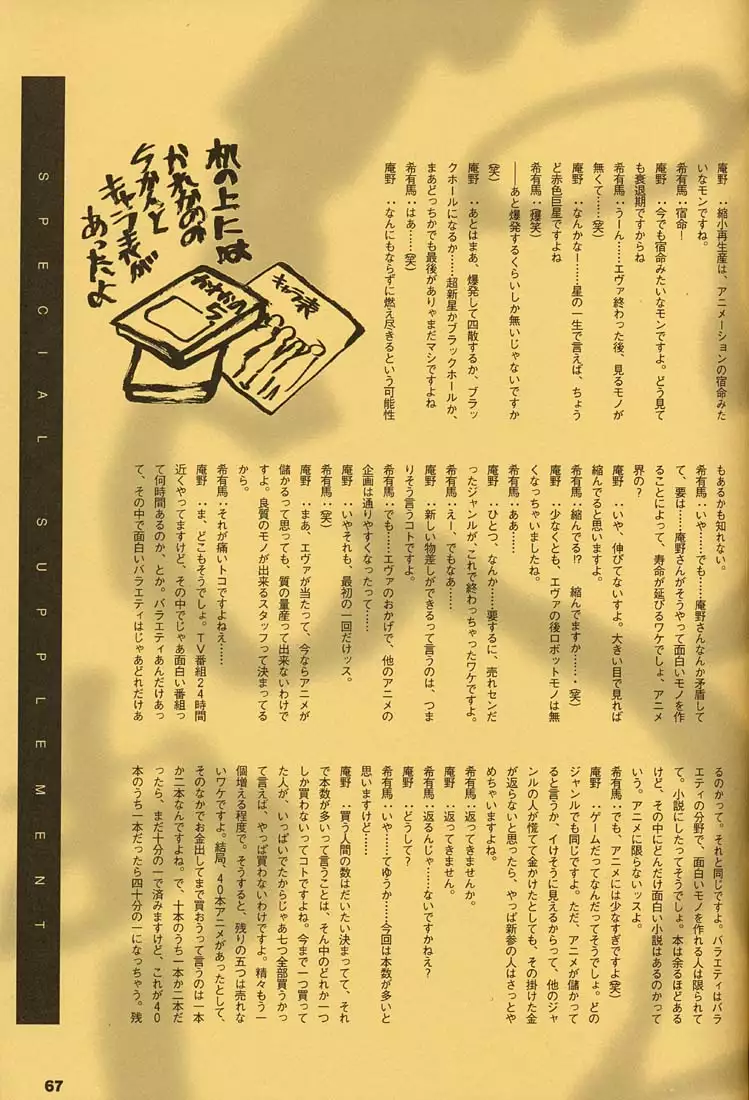 庵野　：縮小再生産は、アニメーションの宿命みた
いなモンですね。
希有馬：宿命！
庵野　：今でも宿命みたいなモンですよ。どう見て
も衰退期ですからね
希有馬：うーん……エヴァ終わった後、見るモノが
無くて……(笑)
庵野　：なんかなー……星の一生で言えば、ちょう
ど赤色巨星ですよね
希有馬：(爆笑)
――あと爆発するくらいしか無いじゃないですか
(笑)
庵野　：あとはまあ、爆発して四散するか、ブラッ
クホールになるか……超新星かブラックホールか、
まあどっちかでも最後がありゃまだマシですよね
希有馬：はあ……(笑)
庵野　：なんにもならずに燃え尽きるという可能性
机の上には
かれかのの
らかんと
キャラ表が
あったよ
キャラ表
もあるかも知れない。
希有馬：いや……でも……庵野さんなんか矛盾して
て、要は……庵野さんがそうやって面白いモノを作
ることによって、寿命が延びるワケでしょ、アニメ
界の？
庵野　：いや、伸びてないすよ。大きい目で見れば
縮んでると思いますよ。
希有馬：縮んでる!?　縮んでますか……・(笑)
庵野　：少なくとも、エヴァの後ロボットモノは無
くなっちゃいましたね。
希有馬：ああ……
庵野　：ひとつ、なんか……要するに、売れセンだ
ったジャンルが、これで終わっちゃったワケですよ。
希有馬：えー、でもなあ……
庵野　：新しい物差しができるって言うのは、つま
りそう言うコトですよ。
希有馬：でも……エヴァのおかげで、他のアニメの
企画は通りやすくなったって……
庵野　：いやそれも、最初の一回だけッス。
希有馬：(笑)
庵野　：まあ、エヴァが当たって、今ならアニメが
儲かるって思っても、質の量産って出来ないわけで
すよ。良質のモノが出来るスタッフって決まってる
から。
希有馬：それが痛いトコですよねえ……
庵野　：ま、どこもそうでしょ。ＴＶ番組２４時間
近くやってますけど、その中でじゃあ面白い番組っ
て何時間あるのか、とか。バラエティあんだけあっ
て、その中で面白いバラエティはじゃあどれだけあ
るのかって。それと同じですよ。バラエティはバラ
エティの分野で、面白いモノを作れる人は限られて
て。小説にしたってそうでしょ。本は余るほどある
けど、その中にどんだけ面白い小説はあるのかって
いう。アニメに限らないッスよ。
希有馬：でも、アニメには少なすぎですよ(笑)
庵野　：ゲームだってなんだってそうでしょ。どの
ジャンルでも同じですよ。ただ、アニメが儲かって
ると言うか、イけそうに見えるからって、他のジャ
ンルの人が慌てて金かけたとしても、その掛けた金
が返らないと思ったら、やっぱ新参の人はさっとや
めちゃいますよね。
希有馬：返ってきませんか。
庵野　：返ってきません。
希有馬：返るんじゃ……ないですかねえ？
庵野　：どうして？
希有馬：いや……てゆうか……今回は本数が多いと
思いますけど……
庵野　：買う人間の数はだいたい決まってて、それ
で本数が多いって言うことは、そん中のどれか一つ
しか買わないってコトですよね。今まで一つ買って
た人が、いっぱいでたからじゃあ七つ全部買うかっ
て言えば、やっぱ買わないわけですよ。精々もう一
個増える程度で。そうすると、残りの五つは売れな
いワケですよ。結局、４０本アニメがあったとして、
そのなかでお金出してまで買おうって言うのは一本
か二本なんですよね。で、十本のうち一本か二本だ
ったら、まだ十分の一で済みますけど、これが４０
本のうち一本だったら四十分の一になっちゃう。残
SPECIAL SUPPLEMENT
67